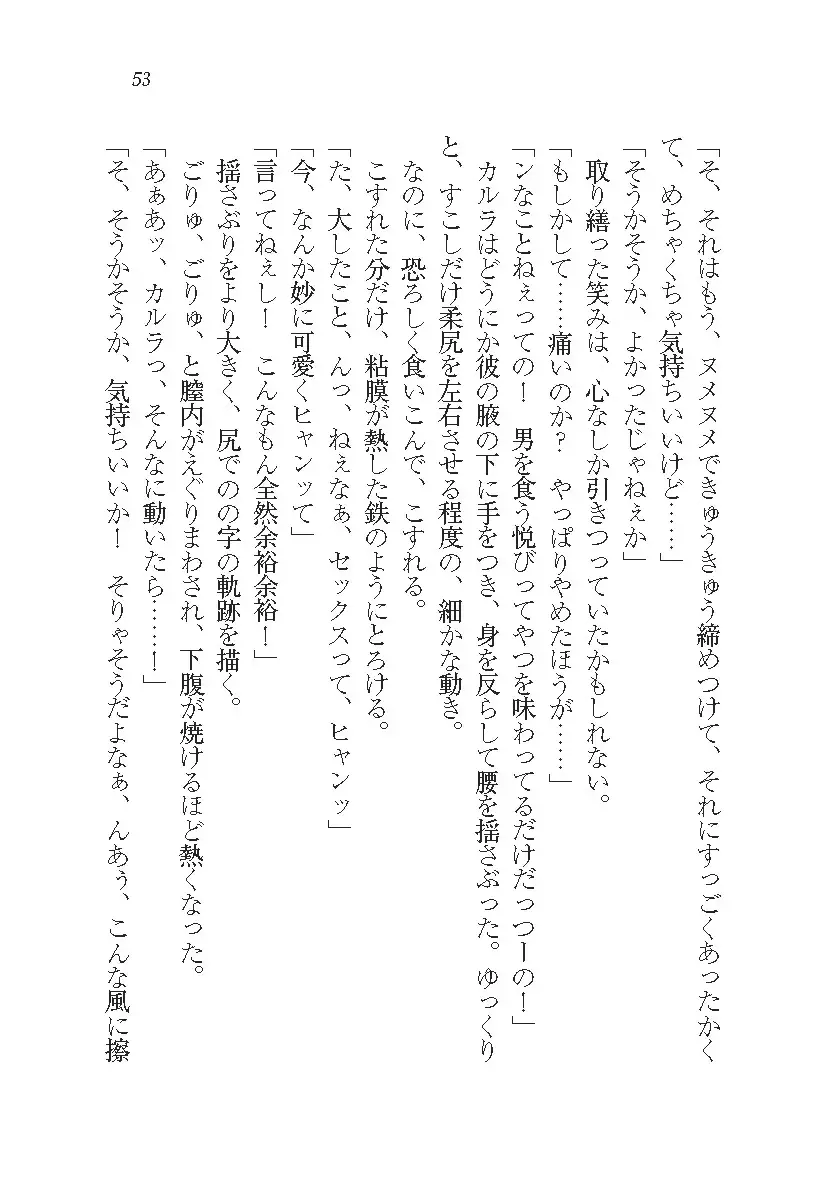 53
「そ、それはもう、ヌメヌメできゅうきゅう締めつけて、それにすっごくあったかく
て、めちゃくちゃ気持ちいいけど……」
「そうかそうか、よかったじゃねぇか」
取り繕った笑みは、心なしか引きつっていたかもしれない。
「もしかして……痛いのか？　やっぱりやめたほうが……」
「ンなことねぇっての！　男を食う悦びってやつを味わってるだけだっつーの！」
カルラはどうにか彼の腋の下に手をつき、身を反らして腰を揺さぶった。ゆっくり
と、すこしだけ柔尻を左右させる程度の、細かな動き。
なのに、恐ろしく食いこんで、こすれる。
こすれた分だけ、粘膜が熱した鉄のようにとろける。
「た、大したこと、んっ、ねぇなぁ、セックスって、ヒャンッ」
「今、なんか妙に可愛くヒャンッて」
「言ってねぇし！　こんなもん全然余裕余裕！」
揺さぶりをより大きく、尻でのの字の軌跡を描く。
ごりゅ、ごりゅ、と膣内がえぐりまわされ、下腹が焼けるほど熱くなった。
「あぁあッ、カルラっ、そんなに動いたら……！」
「そ、そうかそうか、気持ちいいか！　そりゃそうだよなぁ、んあぅ、こんな風に擦